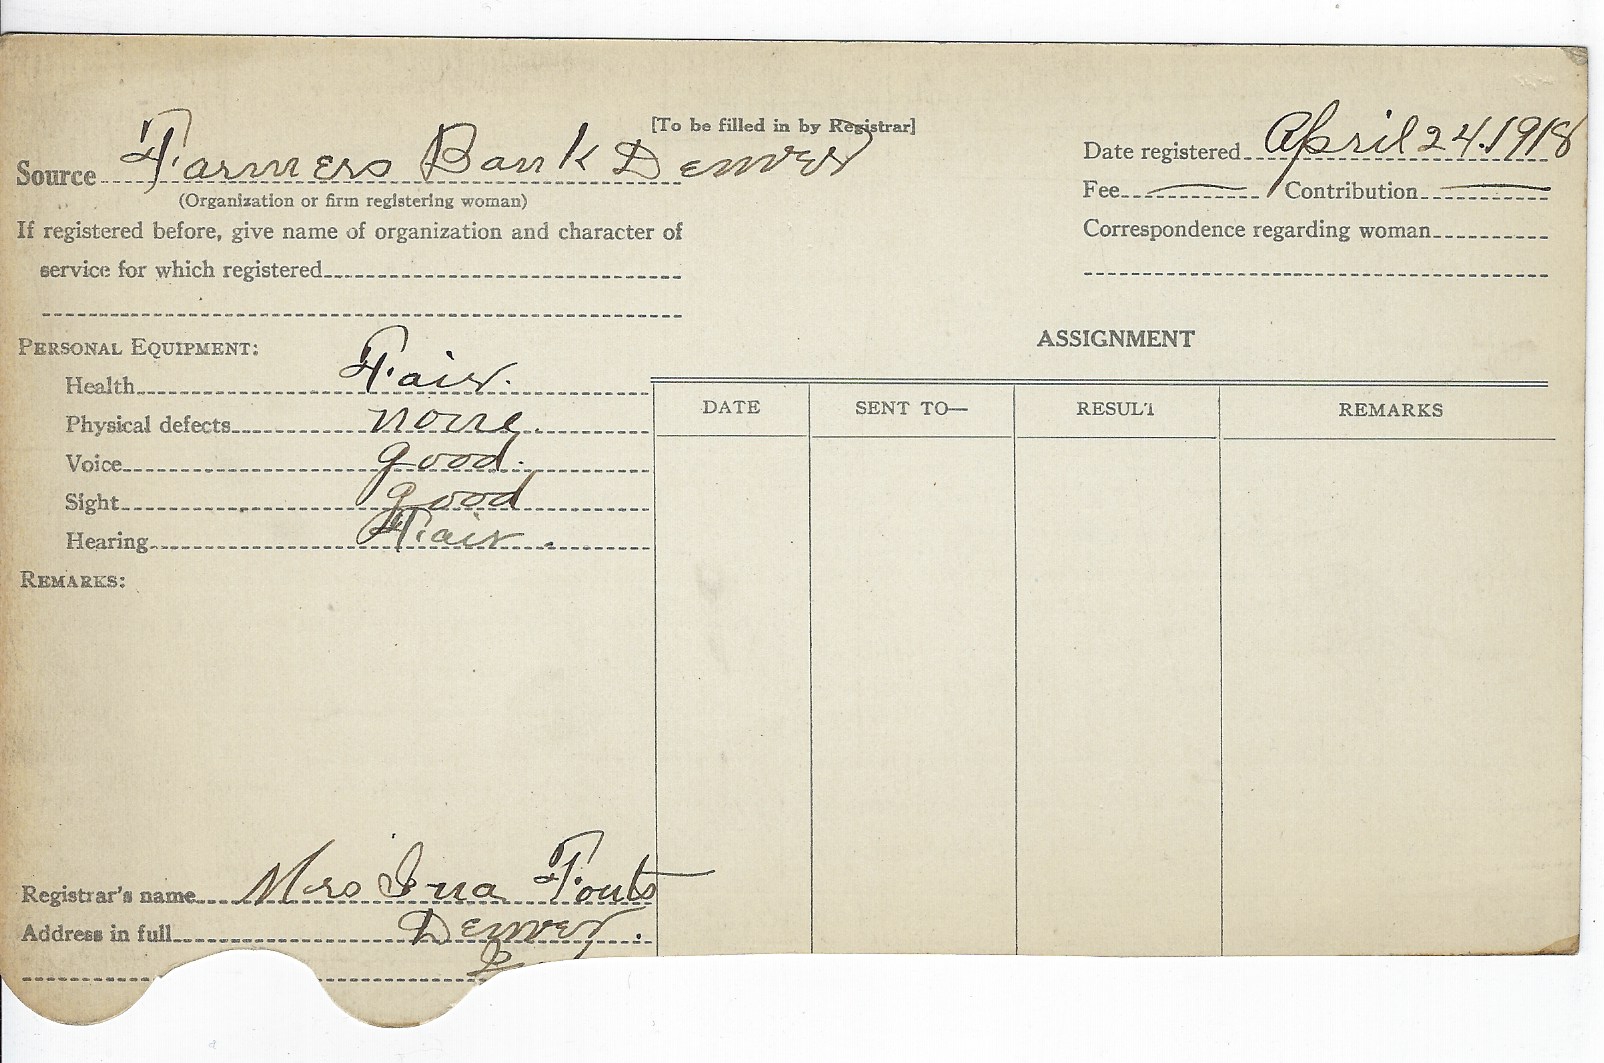 [To be filled in by Registrar]
Source Farmers Bank Denver
(Organization or firm registering woman)
Date registered April 24. 1918
Fee — Contribution —
If registered before, give name of organization and character of
service for which registered
Correspondence regarding woman
PERSONAL EQUIPMENT:
Health Fair.
Physical defects none.
Voice good.
Sight good
Hearing Fair.
REMARKS:
ASSIGNMENT
DATE SENT TO— RESULT REMARKS
Registrar's name Mrs Ina Fouts
Address in full Denver.